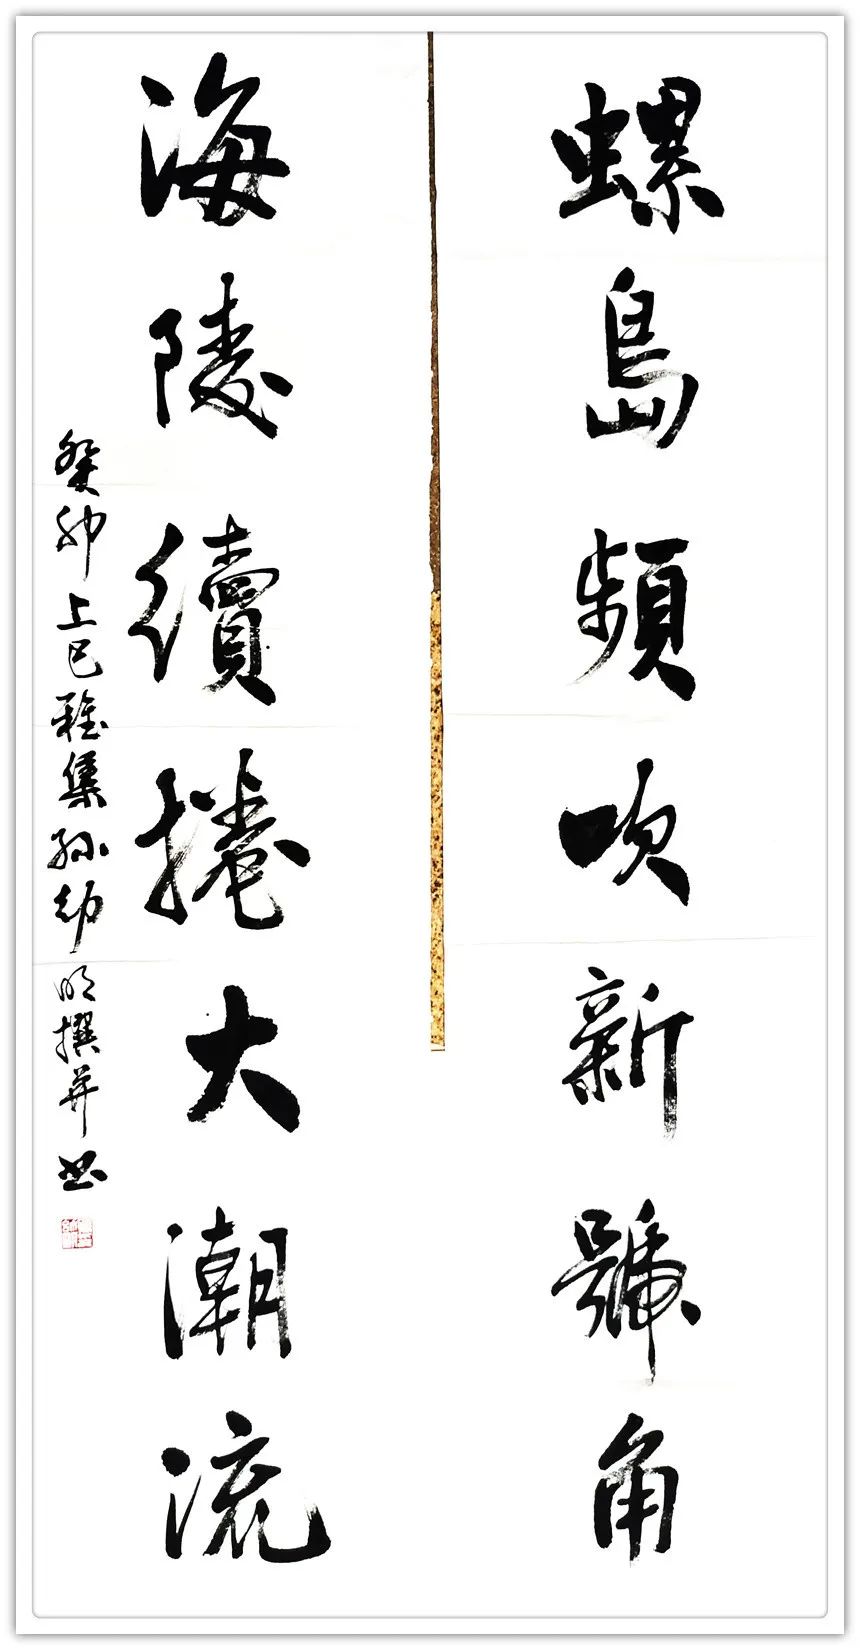 螺島頻吹新號角
海陵續捲大潮流
癸卯上巳雅集孫幼明撰并书